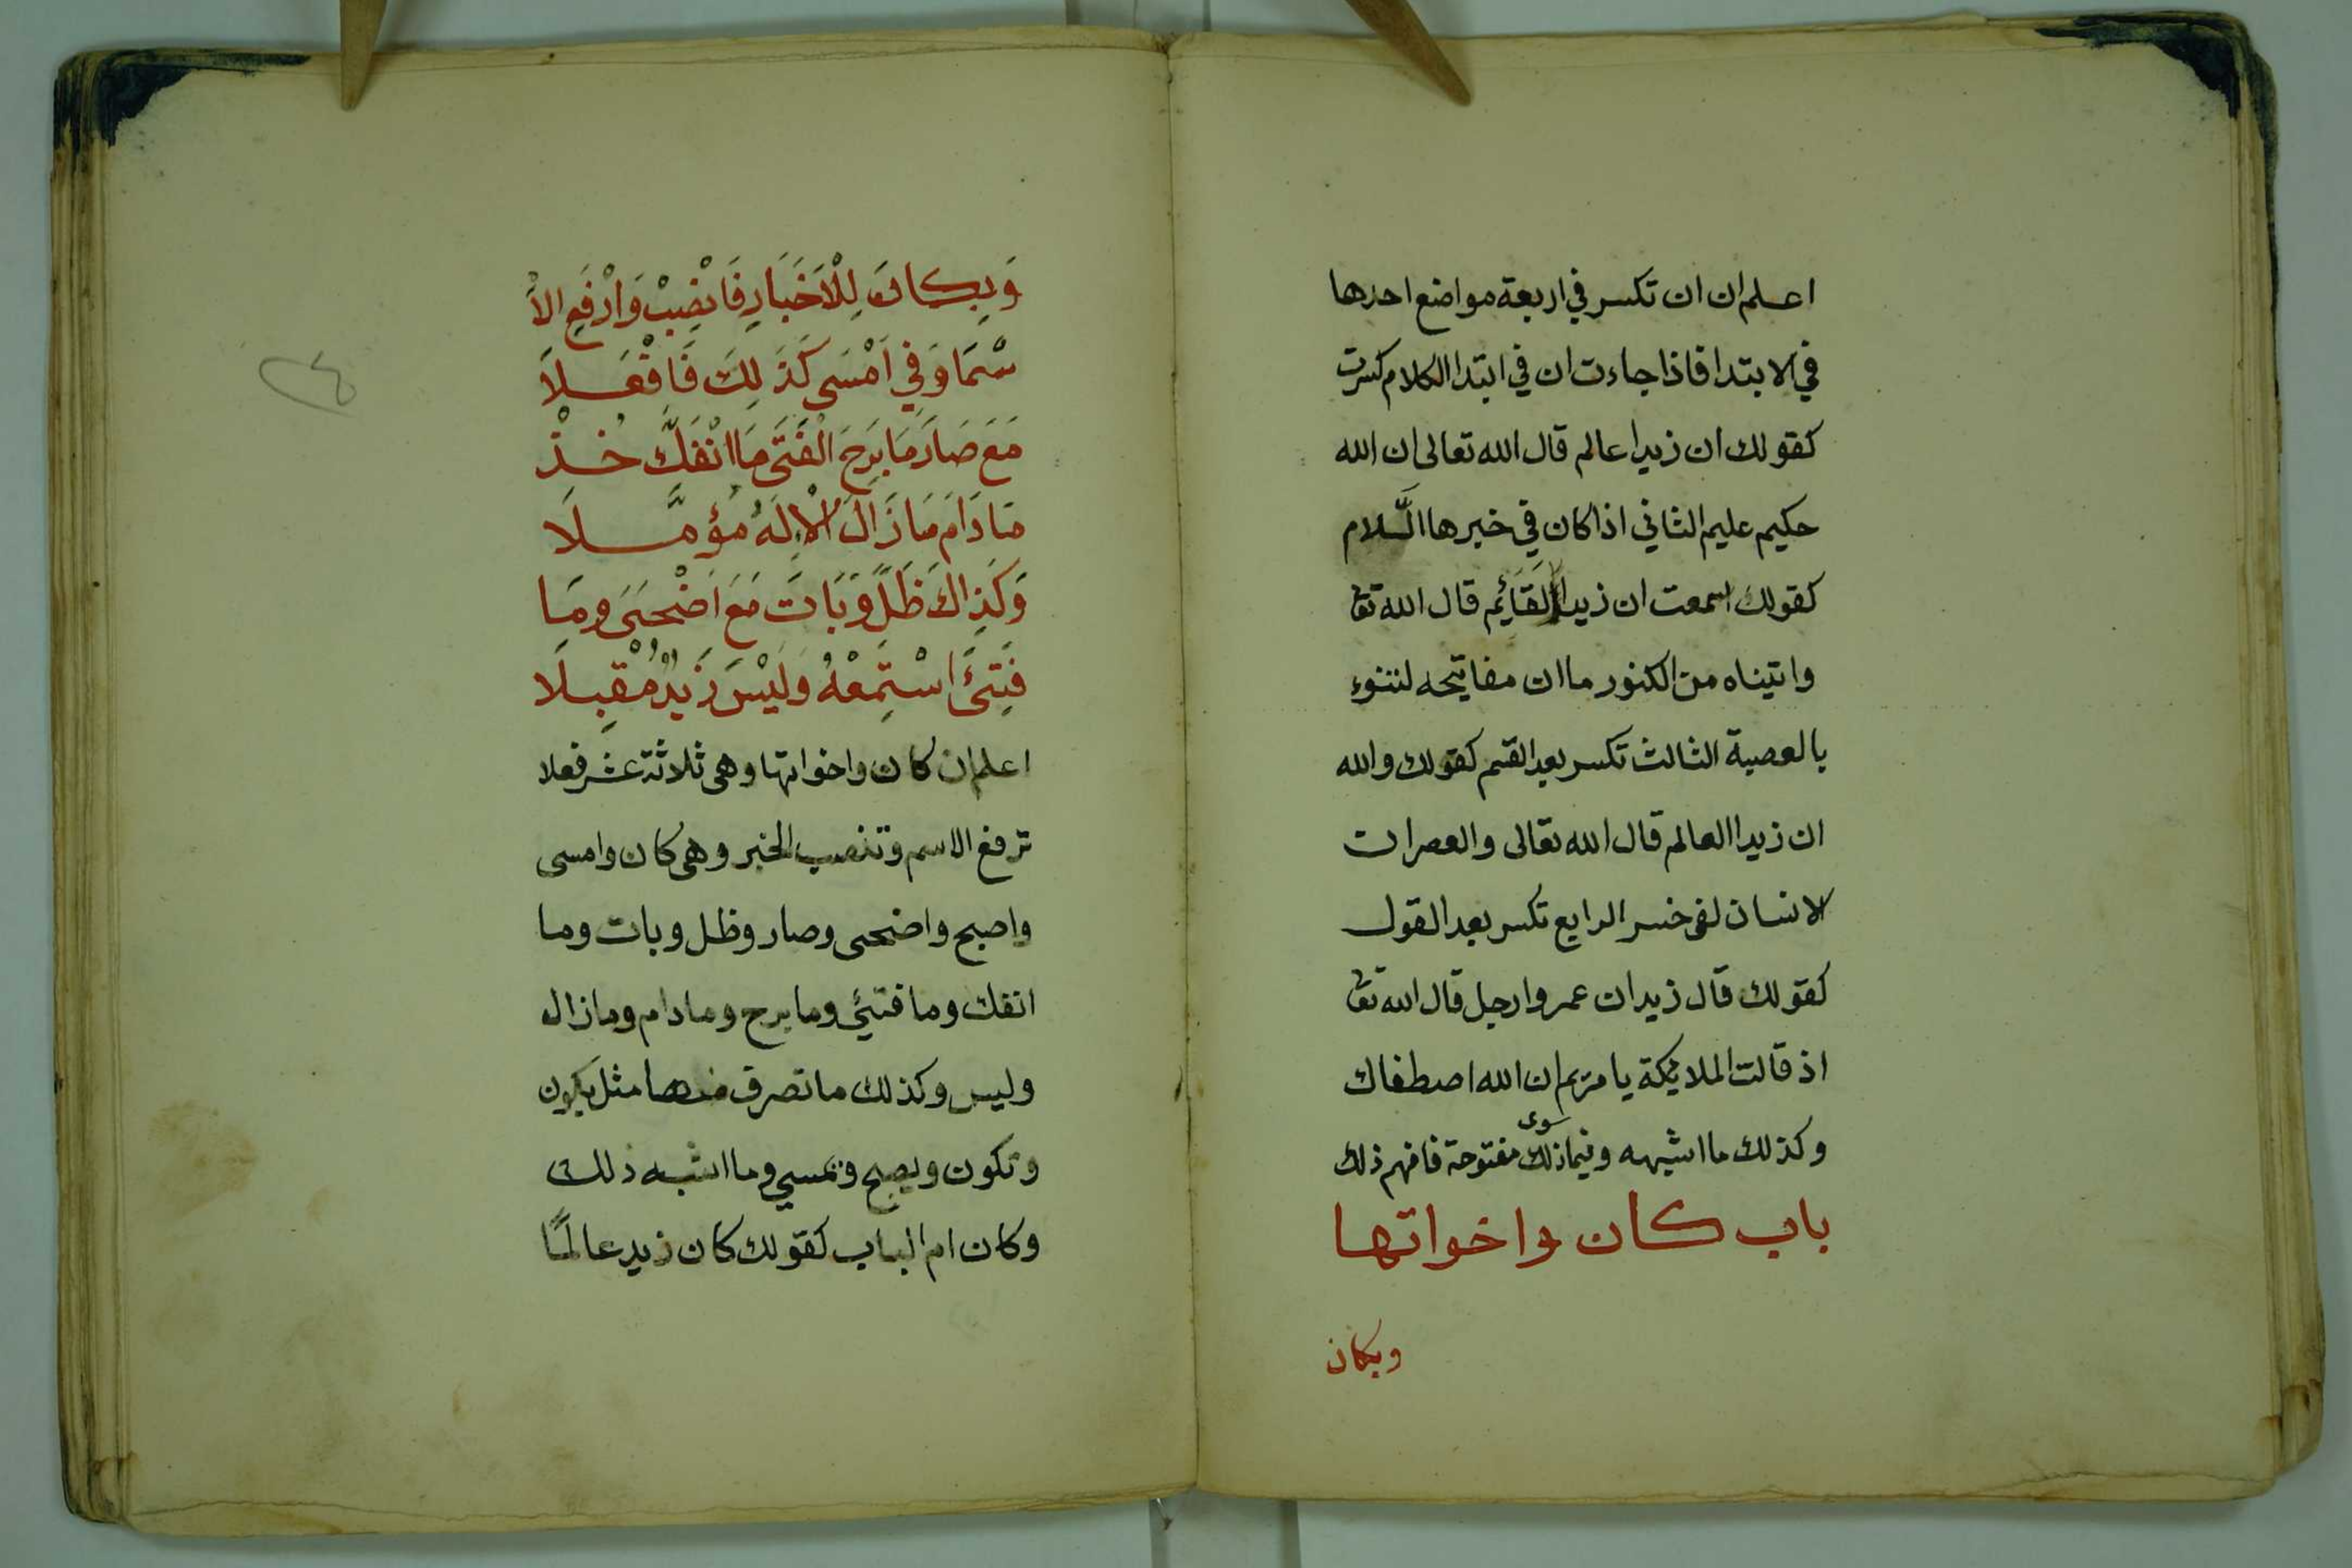 اعلم ان ان تكسر في اربعة مواضع احدها
في الابتدا فاذا جاءت ان في ابتدا الكلام كسرت
كقولك ان زيدا عالم قال الله تعالى ان الله
حكيم عليم الثاني اذا كان في خبرها اللام
كقولك سمعت ان زيدا لقائم قال الله تعا
واتيناه من الكنوز ما ان مفاتيحه لتنوء
بالعصبة الثالث تكسر بعد القسم كقولك والله
ان زيدا العالم قال الله تعالى والعصر ان
الانسان لفي خسر الرابع تكسر بعد القول
كقولك قال زيد ان عمروا رجل قال الله تعا
اذ قالت الملايكة يا مريم ان الله اصطفاك
وكذلك ما اشبهه وفيما سوى ذلك مفتوحة فافهم ذلك
باب كان واخواتها
وبكان
وَبِكَانَ لِلْاَخْبَارِ فَانْصِبْ وَارْفَعِ الاْ
سْمَا وَفِي اَمْسَى كَذَلِكَ فَافْعَلاَ
مَعَ صَارَ مَا بَرِحَ الْفَتَى مَا انْفَكَّ خُذْ
مَا دَامَ مَا زَالَ الْاِلَهُ مُؤمَّلَا
وَكَذِاكَ ظَلَّ وَبَاتَ مَعَ اَضْحَىَ ومَا
فَتِئَ اسْتَمِعْهُ وَلَيْسَ زَيْدٌ مُقْبِلَا
اعلم ان كان واخواتها وهي ثلاثة عشر فعلا
ترفع الاسم وتنصب الخبر وهي كان وامسى
واصبح واضحى وصار وظل وبات وما
انفك وما فتئي وما برح وما دام وما زال
وليس وكذلك ما تصرف منها مثل يكون
وتكون ويصبح وتمسي وما اشبه ذلك
وكان ام الباب كقولك كان زيد عالمًا